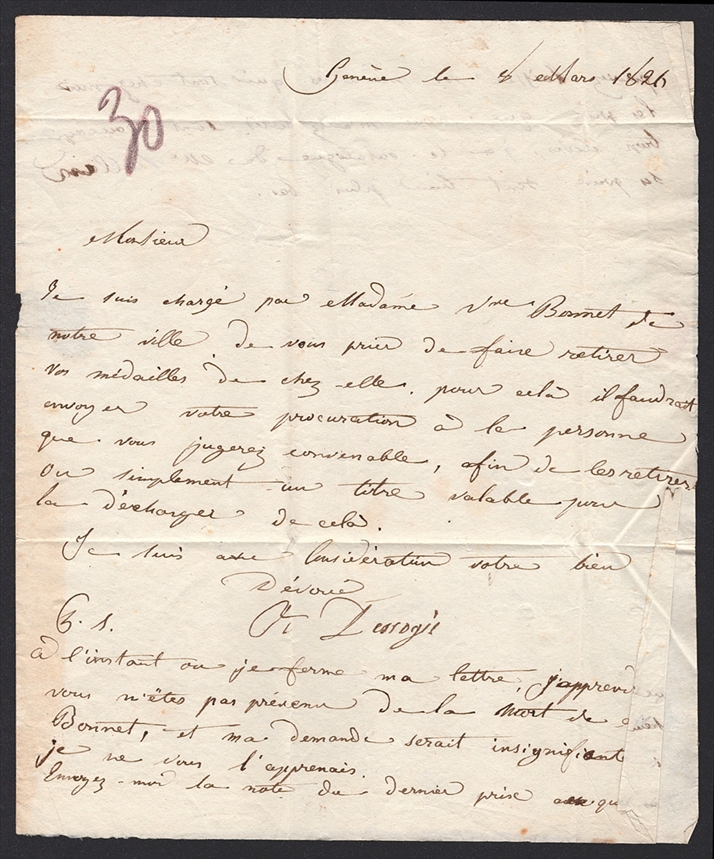 Genève le 8 Mars 1826
30
Monsieur
Je suis chargé par Madame Vve Bonnet de
notre ville de vous prier de faire retirer
vos médailles de chez-elle. pour celà il faudrait
envoyer votre procuration à la personne
que vous jugerez convenable, afin de les retirer
ou simplement un titre valable pour
la décharger de celà.
Je suis avec Considération votre bien
Dévoué
P. S.
à l'instant ou je ferme ma lettre, j'apprend
vous n'êtes pas prévenu de la mort de
Bonnet, et ma demande serait insignifiante
je ne vous l'apprenais.
Envoyez-moi la note du dernier prix